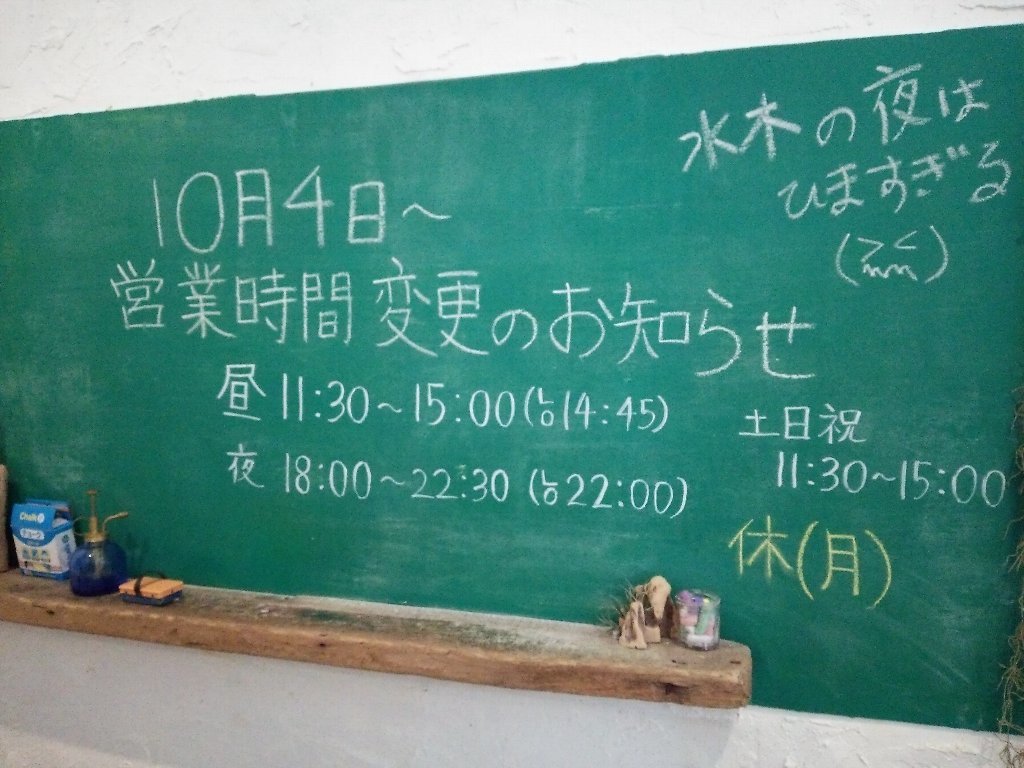 水木の夜は
ひますぎる
(><)
10月4日～
営業時間変更のお知らせ
昼 11:30～15:00(LO14:45)
夜 18:00～22:30 (LO22:00)
土日祝
11:30～15:00
休(月)
Chalk
チョーク